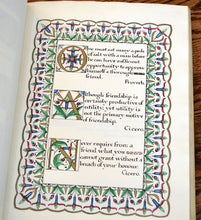 One must eat many a peck
of salt with a man before
he can have sufficient
opportunity to approve
himself a thorough
friend.
Proverb.
Although friendship is
certainly productive of
utility; yet utility is
not the primary motive
of friendship.
Cicero.
Never require from a
friend what you
cannot grant without a
breach of your honour.
Cicero.